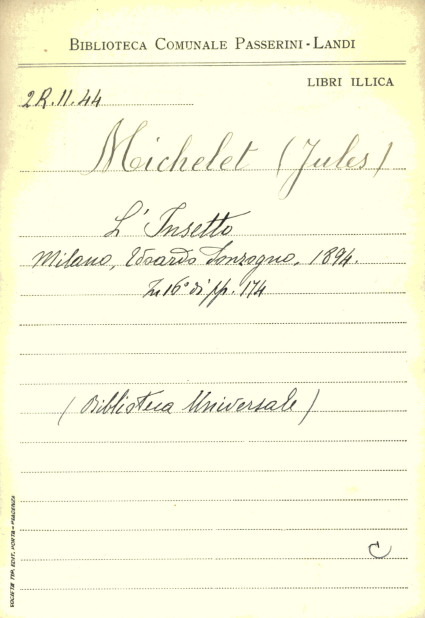 BIBLIOTECA COMUNALE PASSERINI-LANDI
LIBRI ILLICA
2R.II.44
Michelet (Jules)
L'Insetto
Milano, Edoardo Sonzogno, 1894.
In 16° di pp. 174
(Biblioteca Universale)
C
SOCIETÀ TIP. EDIT. PORTA - PIACENZA